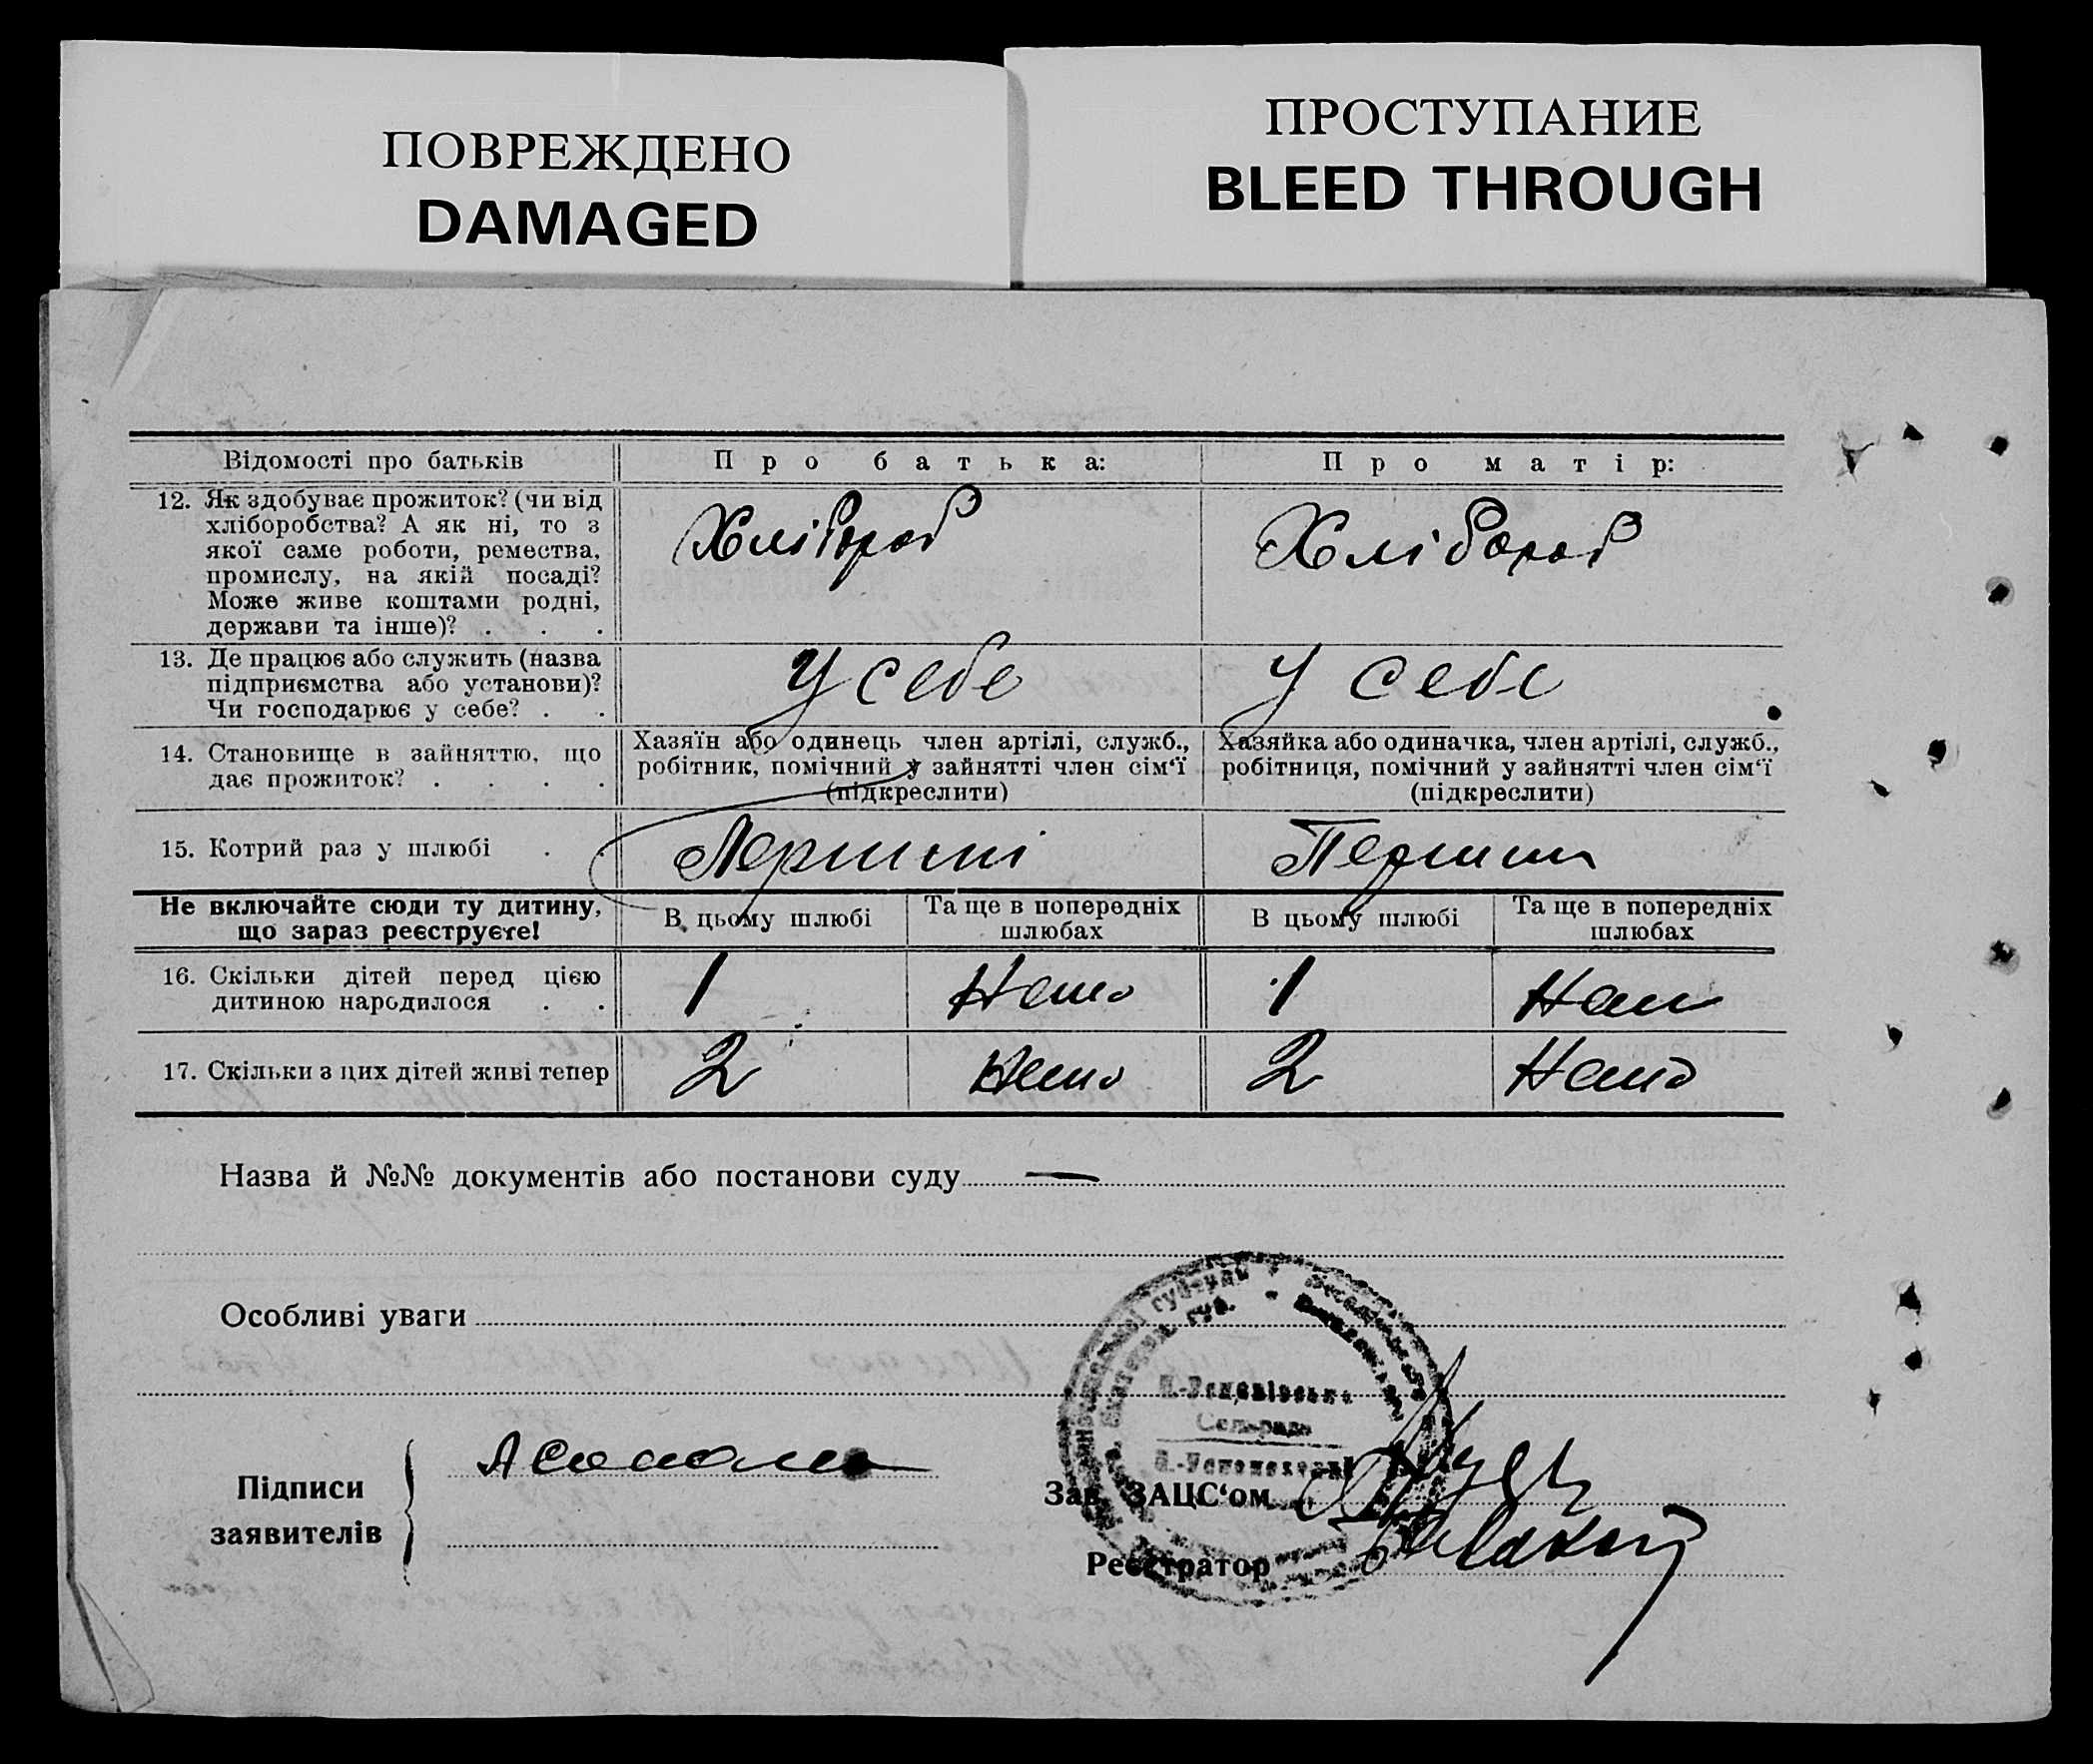 ПОВРЕЖДЕНО
DAMAGED
ПРОСТУПАНИЕ
BLEED THROUGH
Відомості про батьків
Про батька:
Про матір:
12. Як здобуває прожиток? (чи від
хліборобства? А як ні, то з
якої саме роботи, ремества,
промислу, на якій посаді?
Може живе коштами родні,
держави та інше)? . . .
Хлібороб
Хлібороб
13. Де працює або служить (назва
підприємства або установи)?
Чи господарює у себе? . .
У себе
У себе
14. Становище в зайняттю, що
дає прожиток? . . . .
Хазяїн або одинець член артілі, служб.,
робітник, помічний у зайнятті член сім‘ї
(підкреслити)
Хазяйка або одиначка, член артілі, служб.,
робітниця, помічний у зайнятті член сім‘ї
(підкреслити)
15. Котрий раз у шлюбі . .
Не включайте сюди ту дитину,
що зараз реєструєте!
В цьому шлюбі
Та ще в попередніх
шлюбах
В цьому шлюбі
Та ще в попередніх
шлюбах
16. Скільки дітей перед цією
дитиною народилося . .
1
1
17. Скільки з цих дітей живі тепер
2
2
Назва й №№ документів або постанови суду —
Особливі уваги
Підписи
заявителів
Зав. ЗАЦС‘ом
Реєстратор